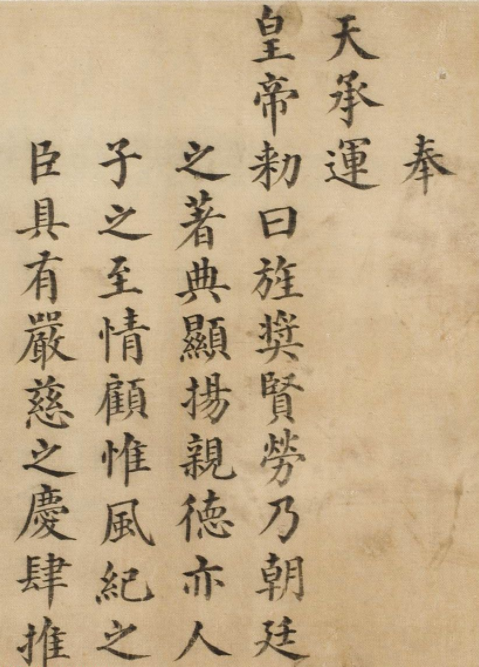 奉
天承運
皇帝勑曰旌奬賢勞乃朝廷
之著典顯揚親德亦人
子之至情顧惟風紀之
臣具有嚴慈之慶肆推